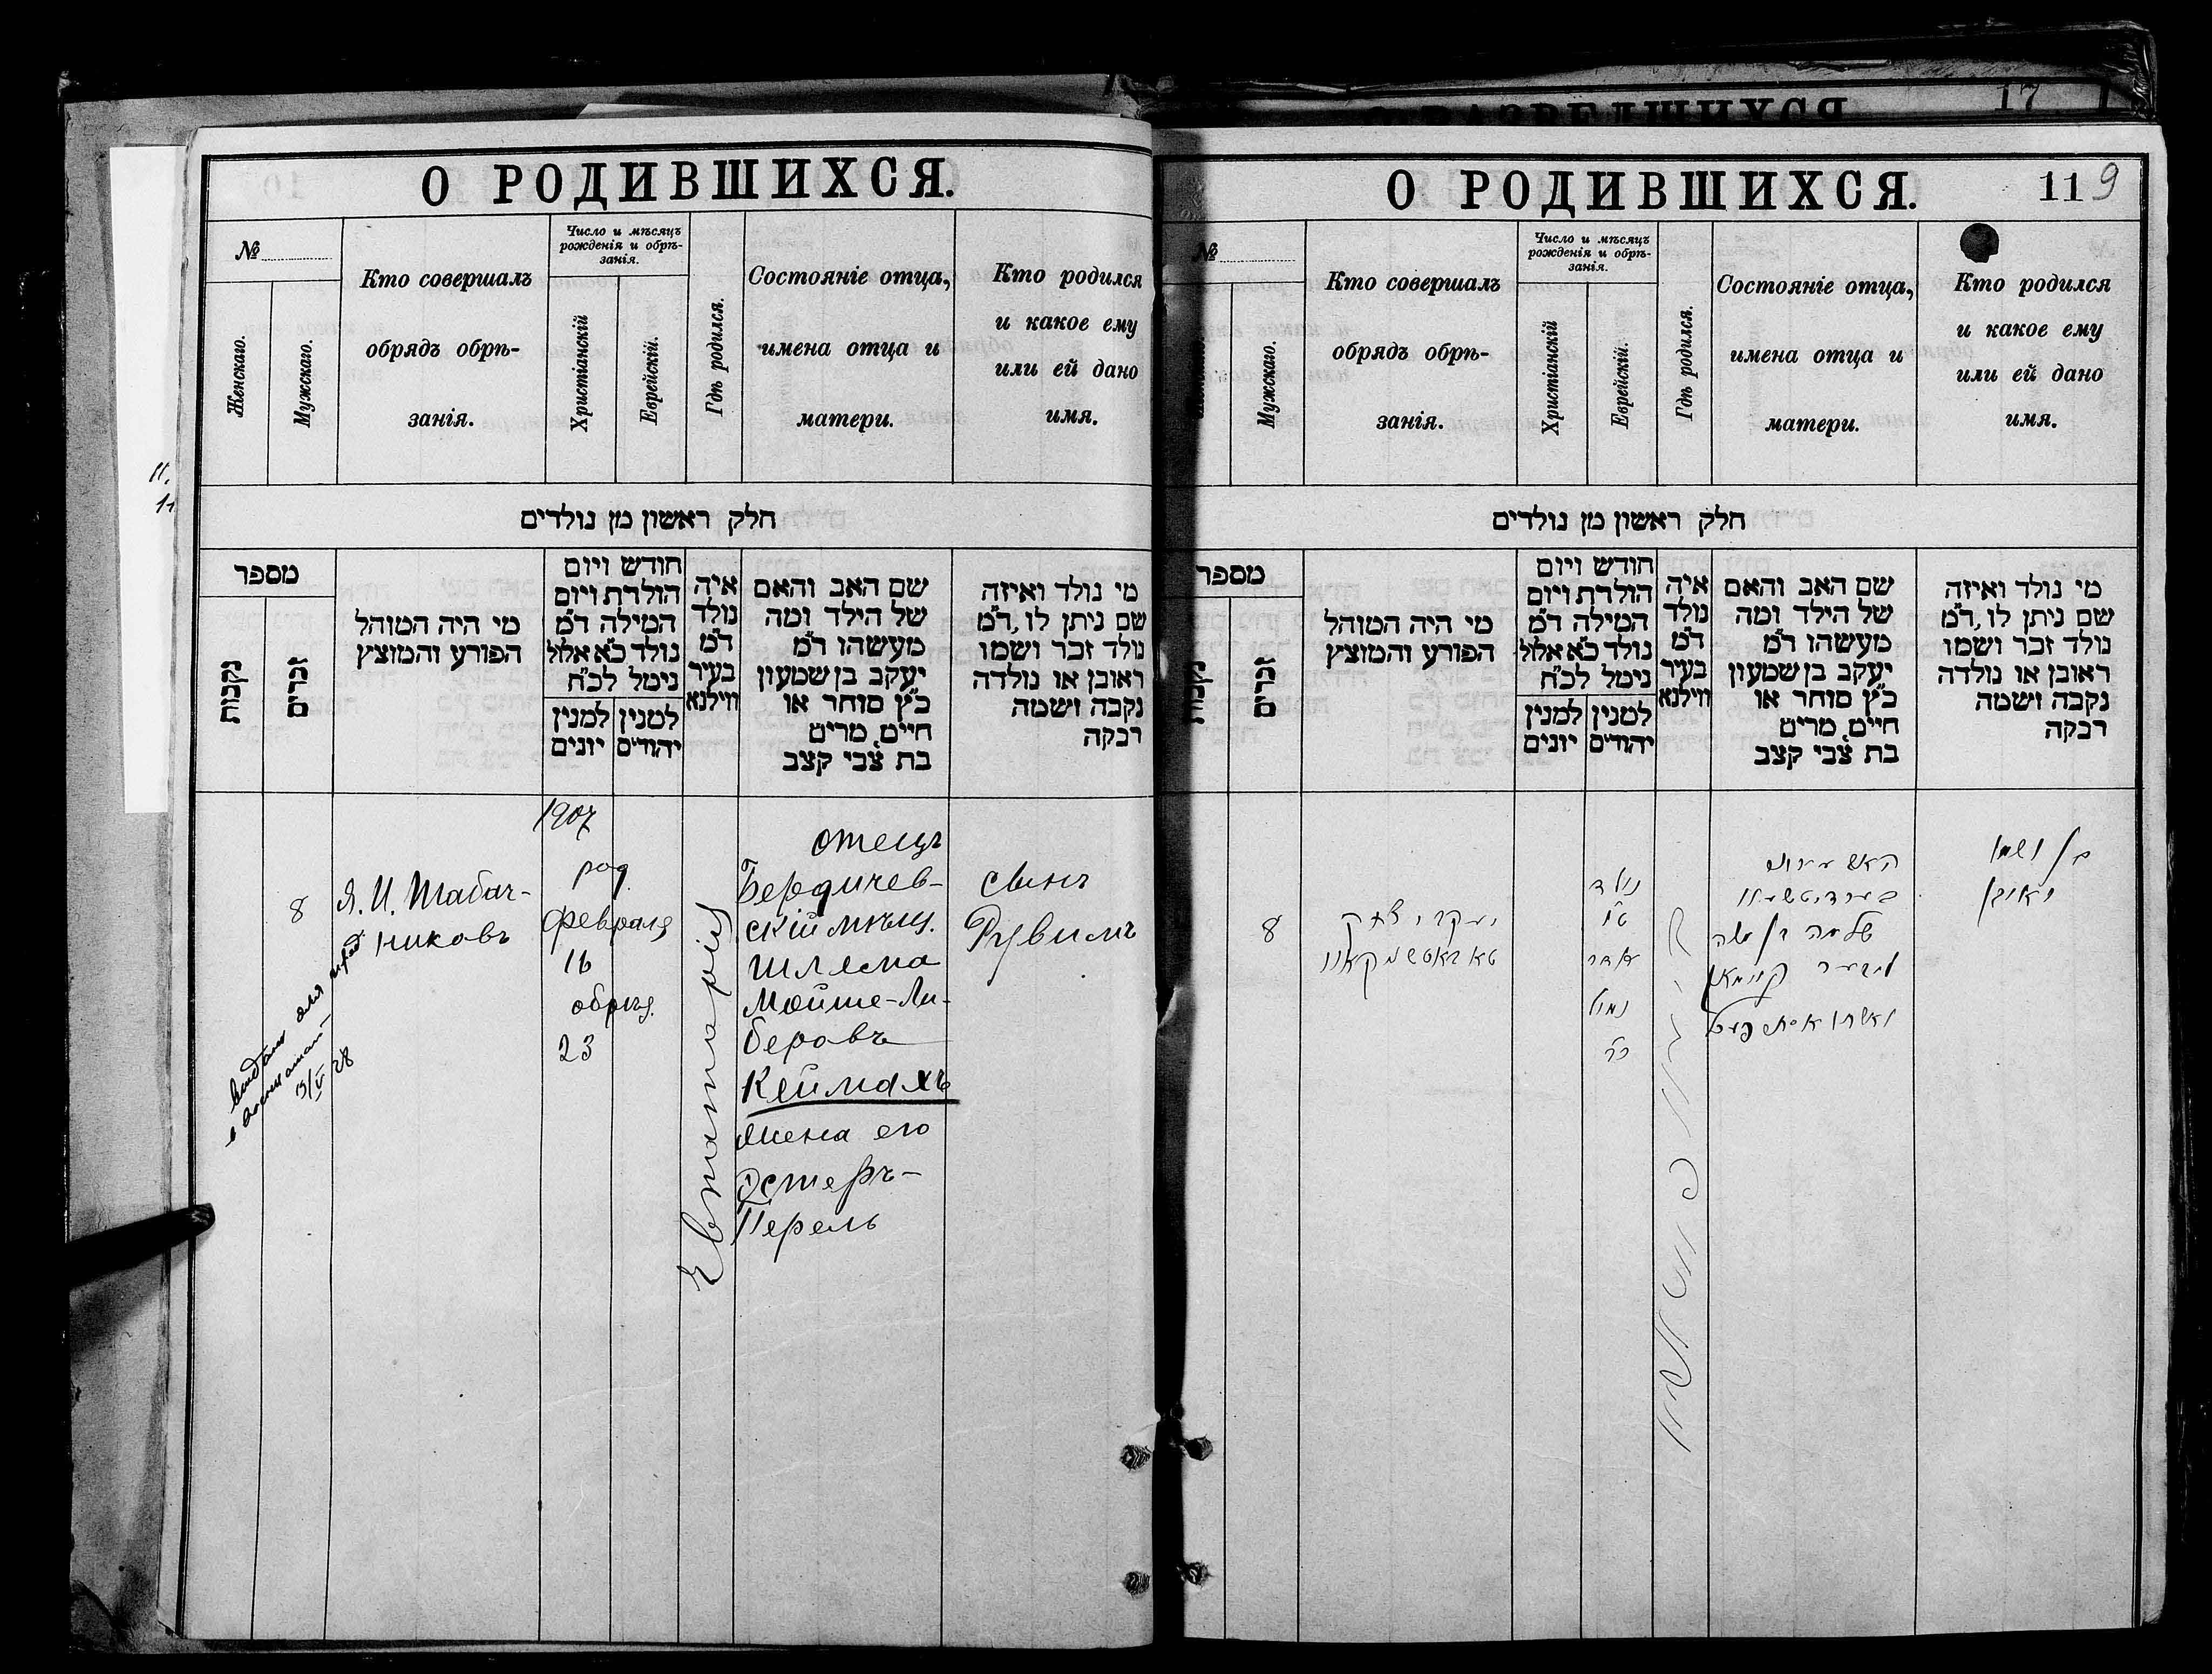 17
О РОДИВШИХСЯ.
№
Женскаго.
Мужскаго.
Кто совершалъ
обрядъ обрѣ-
занія.
Число и мѣсяцъ
рожденія и обрѣ-
занія.
Христіанскій
Еврейскій.
Гдѣ родился.
Состояніе отца,
имена отца и
матери.
Кто родился
и какое ему
или ей дано
имя.
חלק ראשון מן נולדים
מספר
נקבות
זכרים
מי היה המוהל
הפורע והמוצץ
חודש ויום
הולדת ויום
המילה ד"מ
נולד כ"א אלול
נימל לכ"ח
למנין
יונים
למנין
יהודים
איה
נולד
ד"מ
בעיר
ווילנא
שם האב והאם
של הילד ומה
מעשהו ד"מ
יעקב בן שמעון
כ"ץ סוחר או
חייט, מרים
בת צבי קצב
מי נולד ואיזה
שם ניתן לו, ד"מ
נולד זכר ושמו
ראובן או נולדה
נקבה ושמה
רבקה
8
Я. И. Табач-
никовъ
1907
род
Февраля
16
обрѣз.
23
Евпаторія
отецъ
Бердичев-
скій мѣщ.
Шлема
Мойше-Ли-
беровъ
Кеймахъ
жена его
Эстеръ-
Перель
сынъ
Рувимъ
О РОДИВШИХСЯ.
119
№
Мужскаго.
Кто совершалъ
обрядъ обрѣ-
занія.
Число и мѣсяцъ
рожденія и обрѣ-
занія.
Христіанскій
Еврейскій.
Гдѣ родился.
Состояніе отца,
имена отца и
матери.
Кто родился
и какое ему
или ей дано
имя.
חלק ראשון מן נולדים
מספר
נקבות
זכרים
מי היה המוהל
הפורע והמוצץ
חודש ויום
הולדת ויום
המילה ד"מ
נולד כ"א אלול
נימל לכ"ח
למנין
יונים
למנין
יהודים
איה
נולד
ד"מ
בעיר
ווילנא
שם האב והאם
של הילד ומה
מעשהו ד"מ
יעקב בן שמעון
כ"ץ סוחר או
חייט, מרים
בת צבי קצב
מי נולד ואיזה
שם ניתן לו, ד"מ
נולד זכר ושמו
ראובן או נולדה
נקבה ושמה
רבקה
8
יעקב יצחק
נולד
אדר
נמול
שלמה בן משה
בן ושמו
ראובן